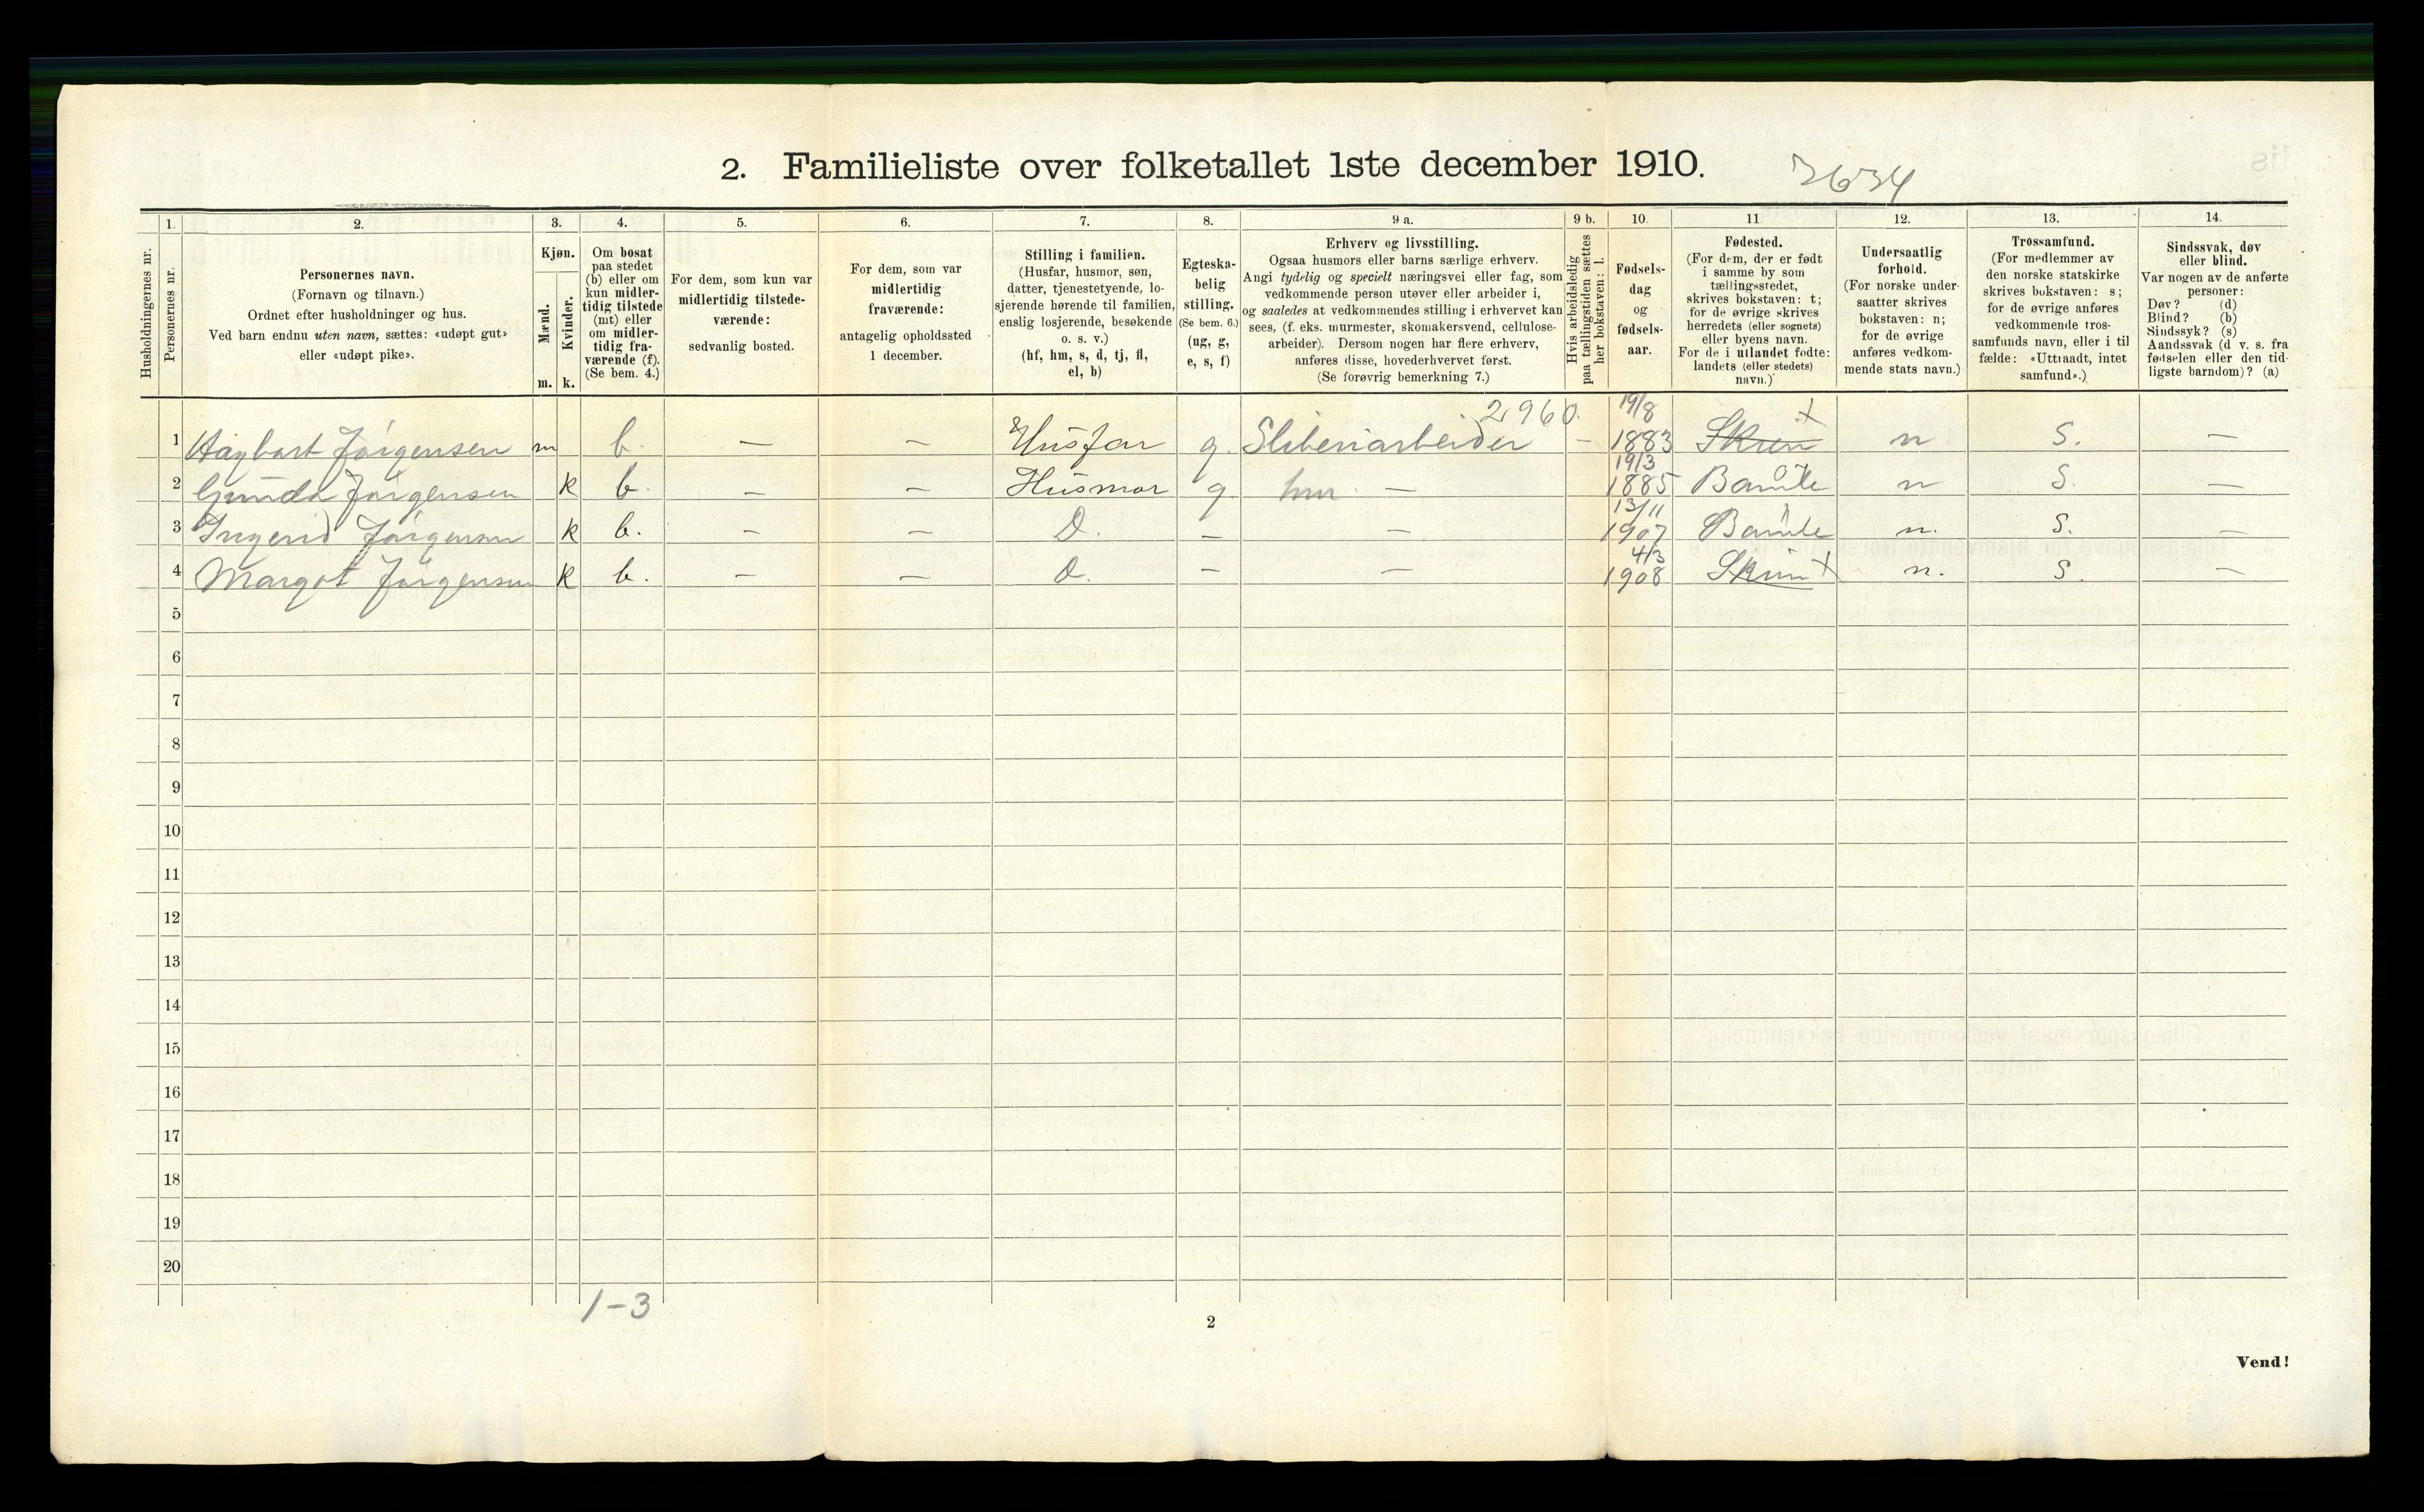 2. Familieliste over folketallet 1ste december 1910.
3634
1. 2. 3. 4. 5. 6. 7. 8. 9 a. 9 b. 10. 11. 12. 13. 14.
Husholdningernes nr.
Personernes nr.
Personernes navn.
(Fornavn og tilnavn.)
Ordnet efter husholdninger og hus.
Ved barn endnu uten navn, sættes: «udøpt gut»
eller «udøpt pike».
Kjøn.
Mænd.
Kvinder.
m. k.
Om bosat
paa stedet
(b) eller om
kun midler-
tidig tilstede
(mt) eller
om midler-
tidig fra-
værende (f).
(Se bem. 4.)
For dem, som kun var
midlertidig tilstede-
værende:
sedvanlig bosted.
For dem, som var
midlertidig
fraværende:
antagelig opholdssted
1 december.
Stilling i familien.
(Husfar, husmor, søn,
datter, tjenestetyende, lo-
sjerende hørende til familien,
enslig losjerende, besøkende
o. s. v.)
(hf, hm, s, d, tj, fl,
el, b)
Egteska-
belig
stilling.
(Se bem. 6.)
(ug, g,
e, s, f)
Erhverv og livsstilling.
Ogsaa husmors eller barns særlige erhverv.
Angi tydelig og specielt næringsvei eller fag, som
vedkommende person utøver eller arbeider i,
og saaledes at vedkommendes stilling i erhvervet kan
sees, (f. eks. murmester, skomakersvend, cellulose-
arbeider). Dersom nogen har flere erhverv,
anføres disse, hovederhvervet først.
(Se forøvrig bemerkning 7.)
Hvis arbeidsledig
paa tællingstiden sættes
her bokstaven: l.
Fødsels-
dag
og
fødsels-
aar.
Fødested.
(For dem, der er født
i samme by som
tællingsstedet,
skrives bokstaven: t;
for de øvrige skrives
herredets (eller sognets)
eller byens navn.
For de i utlandet fødte:
landets (eller stedets)
navn.)
Undersaatlig
forhold.
(For norske under-
saatter skrives
bokstaven: n;
for de øvrige
anføres vedkom-
mende stats navn.)
Trossamfund.
(For medlemmer av
den norske statskirke
skrives bokstaven: s;
for de øvrige anføres
vedkommende tros-
samfunds navn, eller i til
fælde: «Uttraadt, intet
samfund».)
Sindssvak, døv
eller blind.
Var nogen av de anførte
personer:
Døv? (d)
Blind? (b)
Sindssyk? (s)
Aandssvak (d v. s. fra
fødselen eller den tid-
ligste barndom)? (a)
2960. 19/8 t
1 Hagbart Jørgensen m b. — — Husfar g. Sliberiarbeider – 1883 Skien n S. —
19/3
2 Gunda Jørgensen k b. — — Husmor g. hm — 1885 Bamle n S. —
13/11
3 Ingerid Jørgensen k b. — — D. — — 1907 Bamle n. S. —
4/3
4 Margot Jørgensen k b. — — D. — — 1908 Skien t n. S. —
5
6
7
8
9
10
11
12
13
14
15
16
17
18
19
20
1-3
2
Vend!